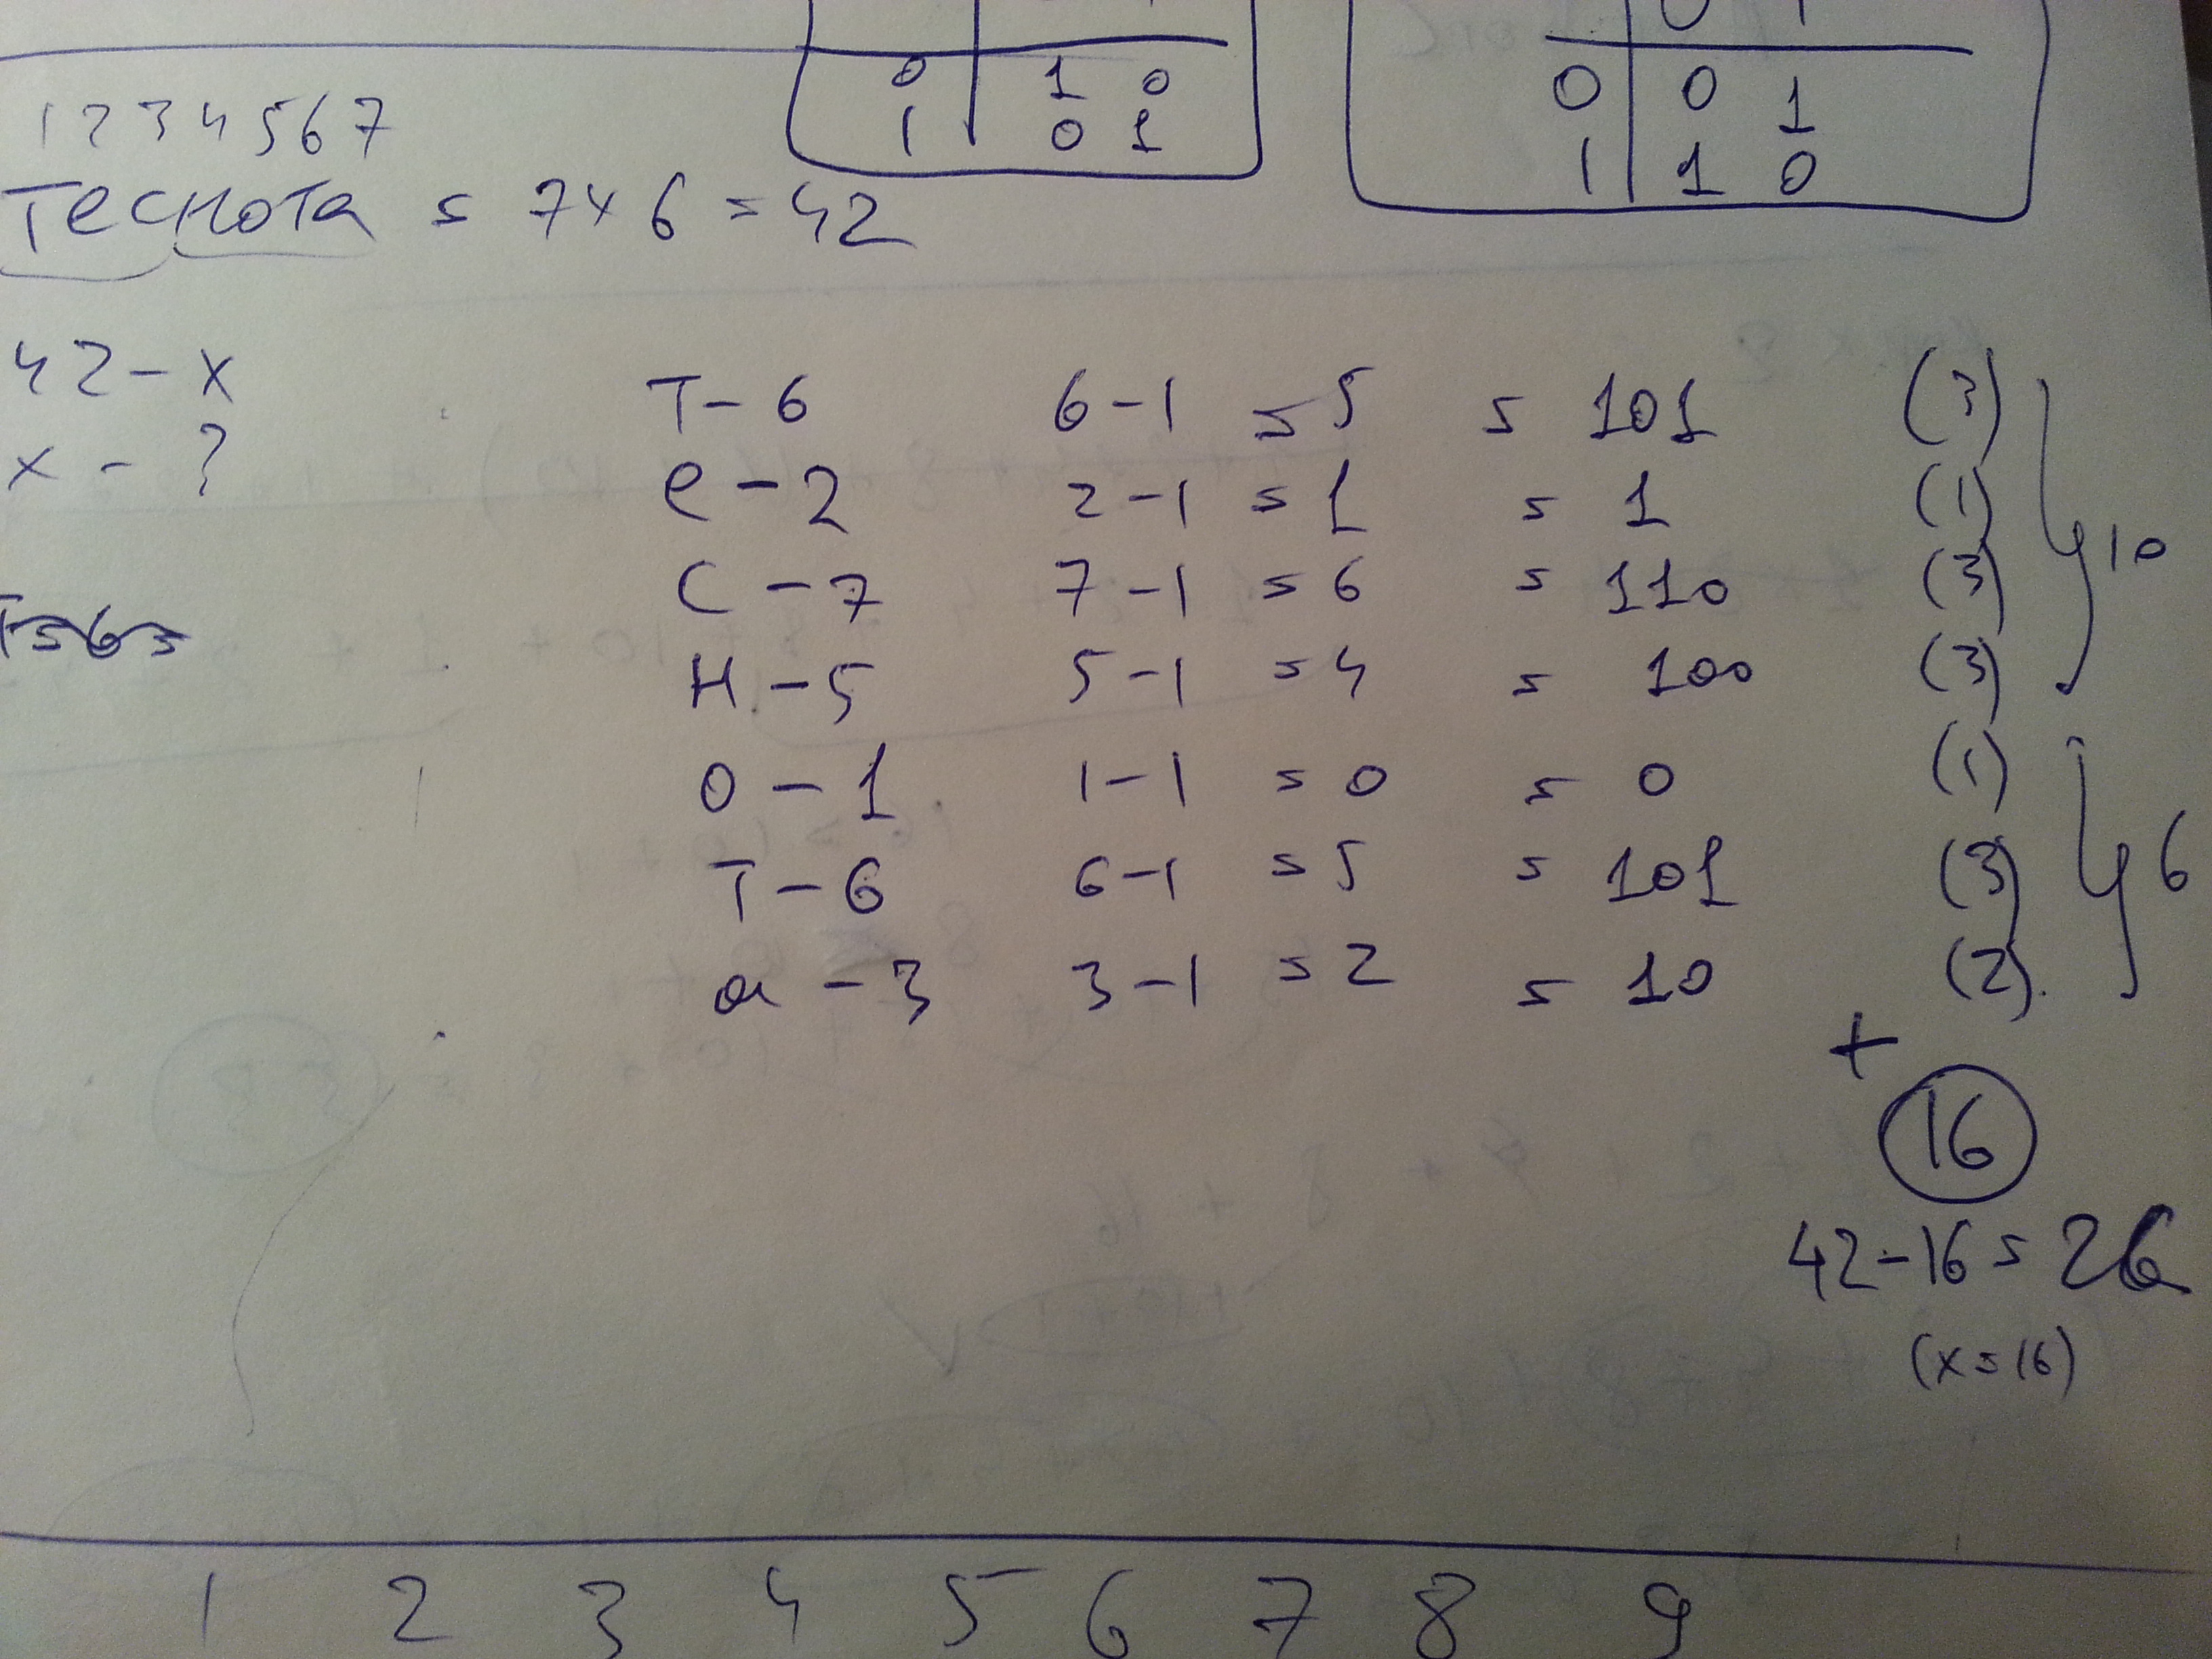 0 1 0
1 0 1
0 1
0 0 1
1 1 0
1 2 3 4 5 6 7
Теснота = 7 x 6 = 42
42 - x
x - ?
Т - 6 6 - 1 = 5 = 101 (3)
е - 2 2 - 1 = 1 = 1 (1)
С - 7 7 - 1 = 6 = 110 (3)
Н - 5 5 - 1 = 4 = 100 (3)
10
О - 1 1 - 1 = 0 = 0 (1)
Т - 6 6 - 1 = 5 = 101 (3)
а - 3 3 - 1 = 2 = 10 (2)
6
+
16
42 - 16 = 26
(x = 16)
1 2 3 4 5 6 7 8 9